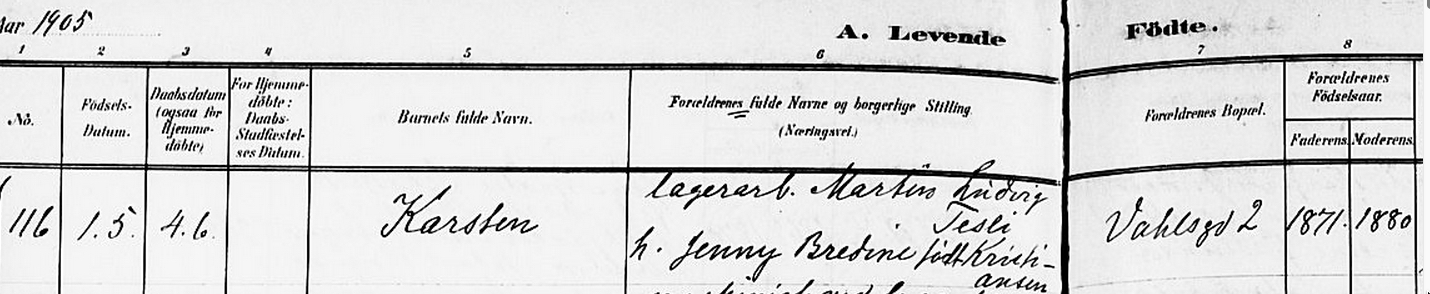 Aar 1905
A. Levende Födte.
1 2 3 4 5 6 7 8
No.
Födsels-
Datum.
Daabsdatum
(ogsaa for
Hjemme-
döbte)
For Hjemme-
döbte:
Daabs-
Stadfæstel-
ses Datum.
Barnets fulde Navn.
Forældrenes fulde Navne og borgerlige Stilling.
(Næringsvei.)
Forældrenes Bopæl.
Forældrenes
Födselsaar.
Faderens. Moderens.
116 1.5. 4.6. Karsten
lagerarb. Martin Ludvig
Tesli
h. Jenny Bredine født Kristi-
ansen
Vahlsgd 2 1871. 1880